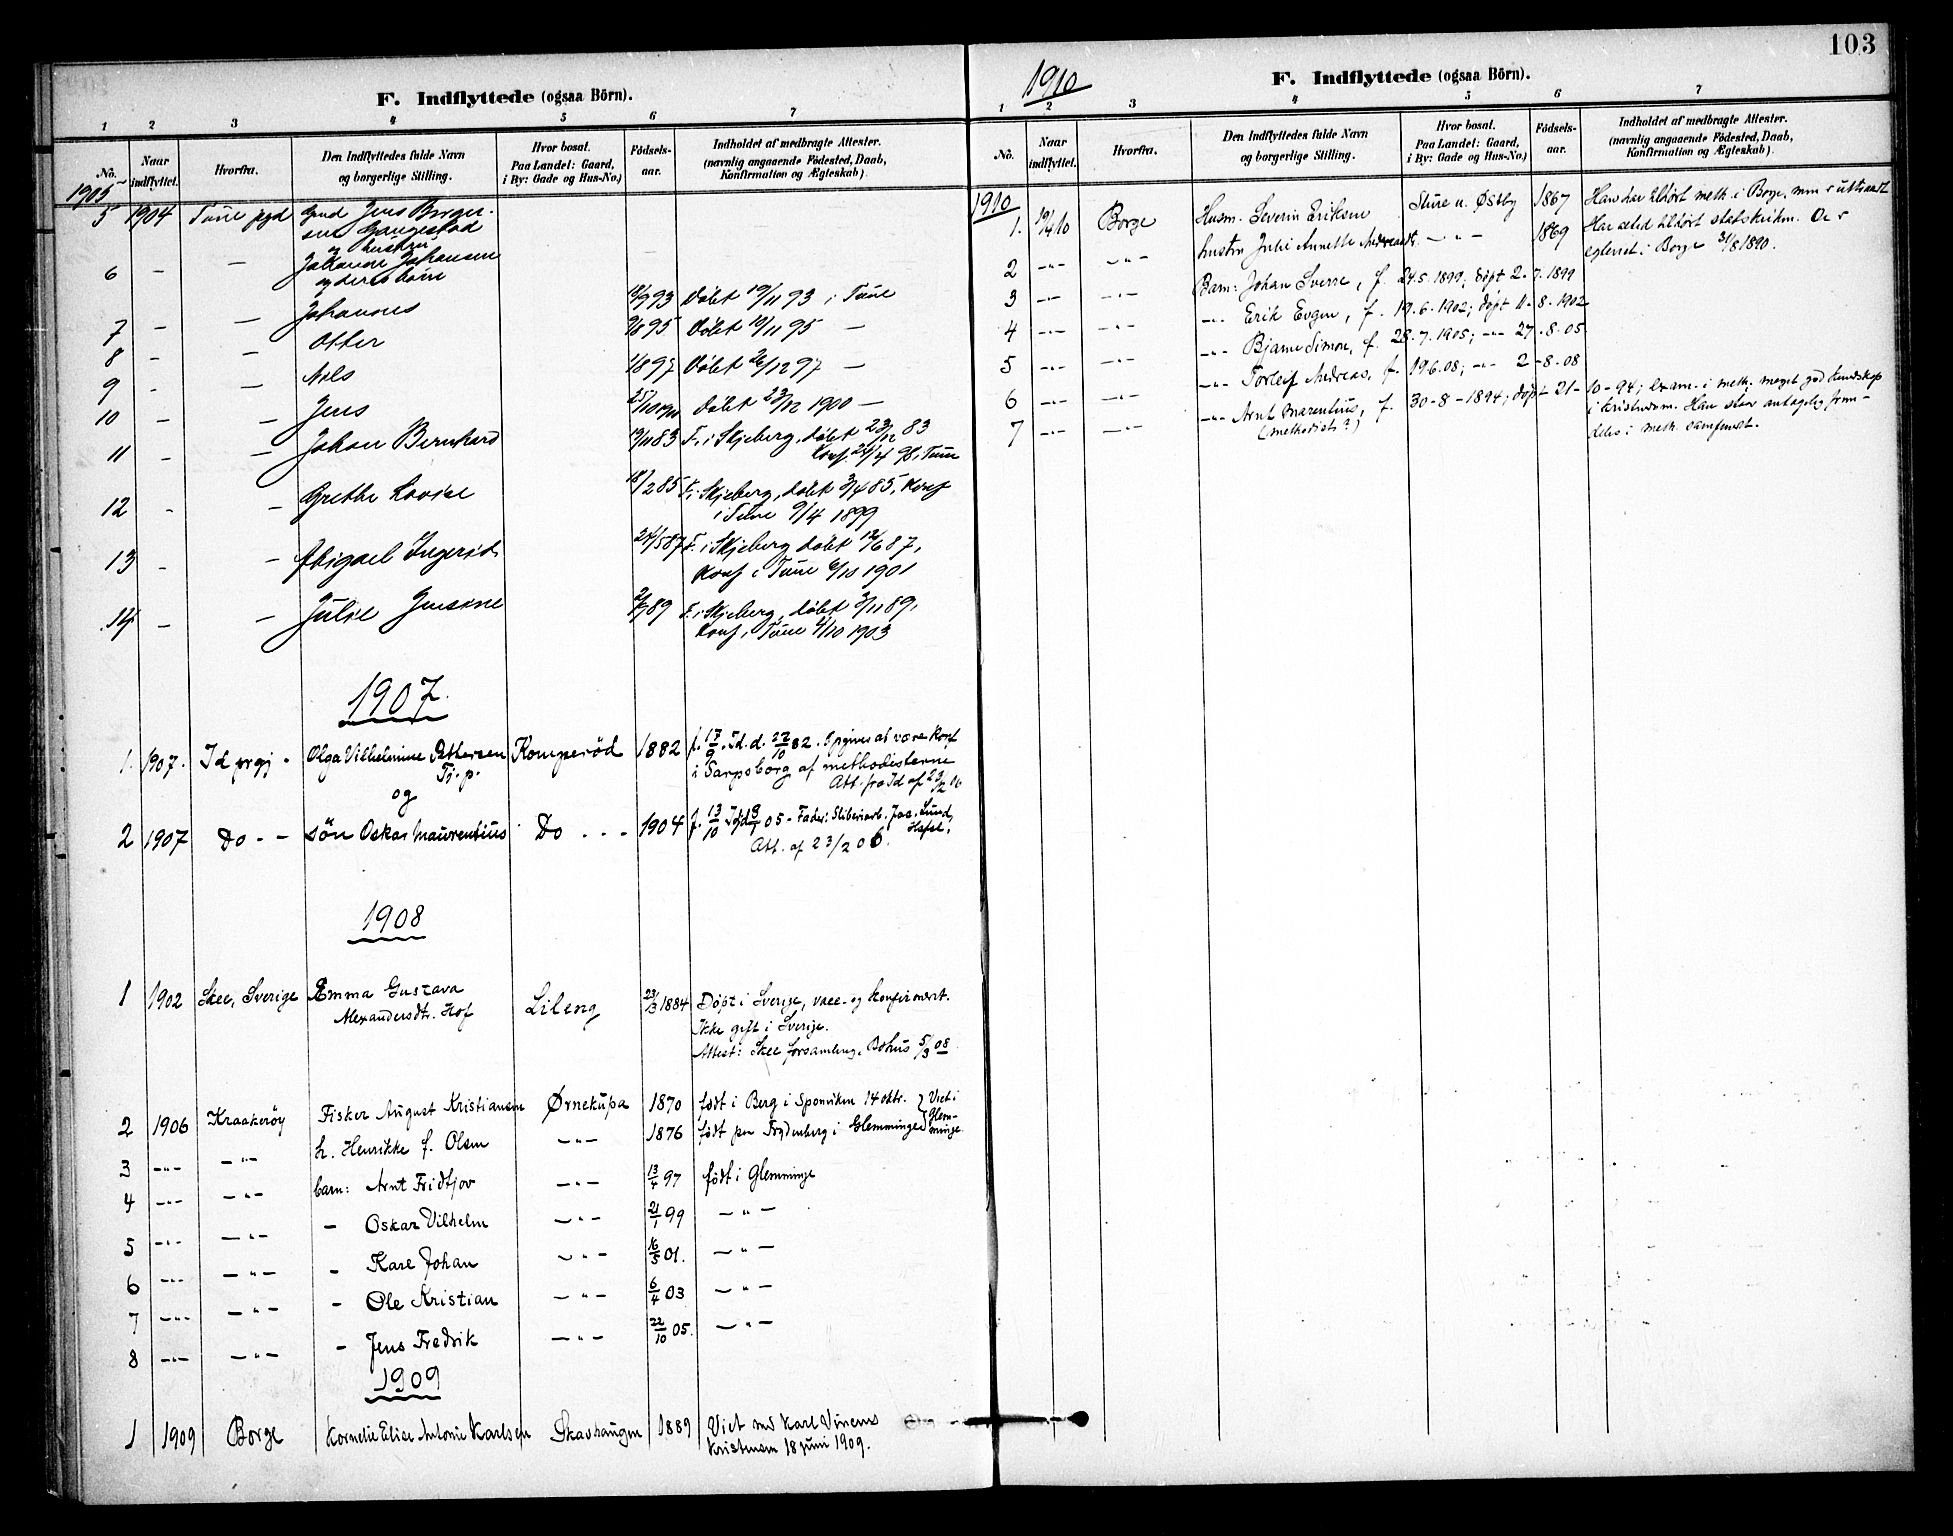 F. Indflyttede (ogsaa Börn).
1 2 3 4 5 6 7
No. Naar indflyttet. Hvorfra. Den Indflyttedes fulde Navn og borgerlige Stilling. Hvor bosat. Paa Landet: Gaard, i By: Gade og Hus-No.) Födsels-aar. Indholdet af medbragte Attester. (navnlig angaaende Födested, Daab, Konfirmation og Ægteskab).
1905
5 1904 Tune pgd Jens Birger-
sen Gangestad
og hustru
6 — — Johanne Johansen
og deres børn
7 — — Johannes 93 Døbt 19/11 93 i Tune
8 — — Otter 9/8 95 Døbt 10/11 95 —
9 - — Nils 1/8 97 Døbt 26/12 97 —
10 — — Jens 25/10 1900 Døbt 23/12 1900 —
11 — — Johan Bernhard 19/11 83 F. i Skjeberg, døbt 23/12 83
Konf. 24/4 98, Tune
12 - — Grethe Lovise 18/2 85 F. i Skjeberg, døbt 3/4 85, Konf
i Tune 9/4 1899
13 - — Abigael Ingerid 24/5 87 F. i Skjeberg døbt 12/6 87,
Konf i Tune 6/10 1901
14 — — Julie Jensine 89 F. i Skjeberg, døbt 3/11 89,
Konf. i Tune 4/10 1903
1907.
1. 1907. Id prgj. Olga Vilhelmine Pettersen Komperød 1882 f. 17/9. Id. d. 22/10 82. Opgives at være konf
Tj. p. i Sarpsborg af methodisterne
Att. fra Id af 23/2 06
og
2 1907 Do - - søn Oskar Maurentius Do - - - 1904 f. 13/10 Id 05 - Fader: Sliberiarb. Jac. Lund,
Hafsl.
Att. af 23/2 06.
1908
1 1902 Skee, Sverige Emma Gustava Lileng 23/3 1884 Døpt i Sverige, vacc. og konfirmeret.
Alexandersdtr. Hof Ikke gift i Sverige.
Attest: Skee forsamling, Bohus 5/3 08.
2 1906 Kraakerøy Fisker August Kristiansen Ørnekupa 1870 født i Berg i Sponviken 14 oktr. } Viet i
Glem-
3 -"- -"- h. Henrikke f. Olsen -"- 1876 født paa Frydenberg i Glemminge minge
4 -"- -"- barn: Arnt Fridtjov -"- 13/4 97 født i Glemminge
5 -"- -"- - Oskar Vilhelm -"- 21/1 99 -"-
6 -"- -"- - Kare Johan -"- 16/5 01. -"-
7 -"- -"- - Ole Kristian -"- 6/4 03 -"-
8 -"- -"- - Jens Fredrik -"- 22/10 05. -"-
1909
1 1909 Borge Kornelie Elise Antonie Karlsen Skavhaugen 1889 Viet med Karl Vincens
Kristensen 18 juni 1909.
103
1910
F. Indflyttede (ogsaa Börn).
1 2 3 4 5 6 7
No. Naar indflyttet. Hvorfra. Den Indflyttedes fulde Navn og borgerlige Stilling. Hvor bosat. Paa Landet: Gaard, i By: Gade og Hus-No.) Födsels-aar. Indholdet af medbragte Attester. (navnlig angaaende Födested, Daab, Konfirmation og Ægteskab).
1910
1. 19/4 10 Borge Husm. Severin Eriksen Sture u. Østby 1867 Han har tilhørt meth. i Borge, men er uttraadt
2 -"- -"- hustru Julie Annette Andreasdt. -"- 1869 Har altid tilhørt statskirken. De er
egteviet i Borge 31/8 1890.
3 -"- -"- Barn: Johan Sverre, f. 24.5.1899; døpt 2-7.1899
4 -"- -"- -"- Erik Evgen, f. 19.6.1902; døpt 11-8-1902
5 -"- -"- -"- Bjarne Simon, f. 28.7.1905; -"- 27-8-05
6 -"- -"- -"- Torleif Andreas, f. 19.6.08; -"- 2-8-08
7 -"- -"- -"- Arnt Marentius, f. 30-8-1894; døpt 21-10-94; exam. i meth. meget god kundskap
(methodist?) i kristendom. Han staar antagelig frem-
deles i meth. samfundet.